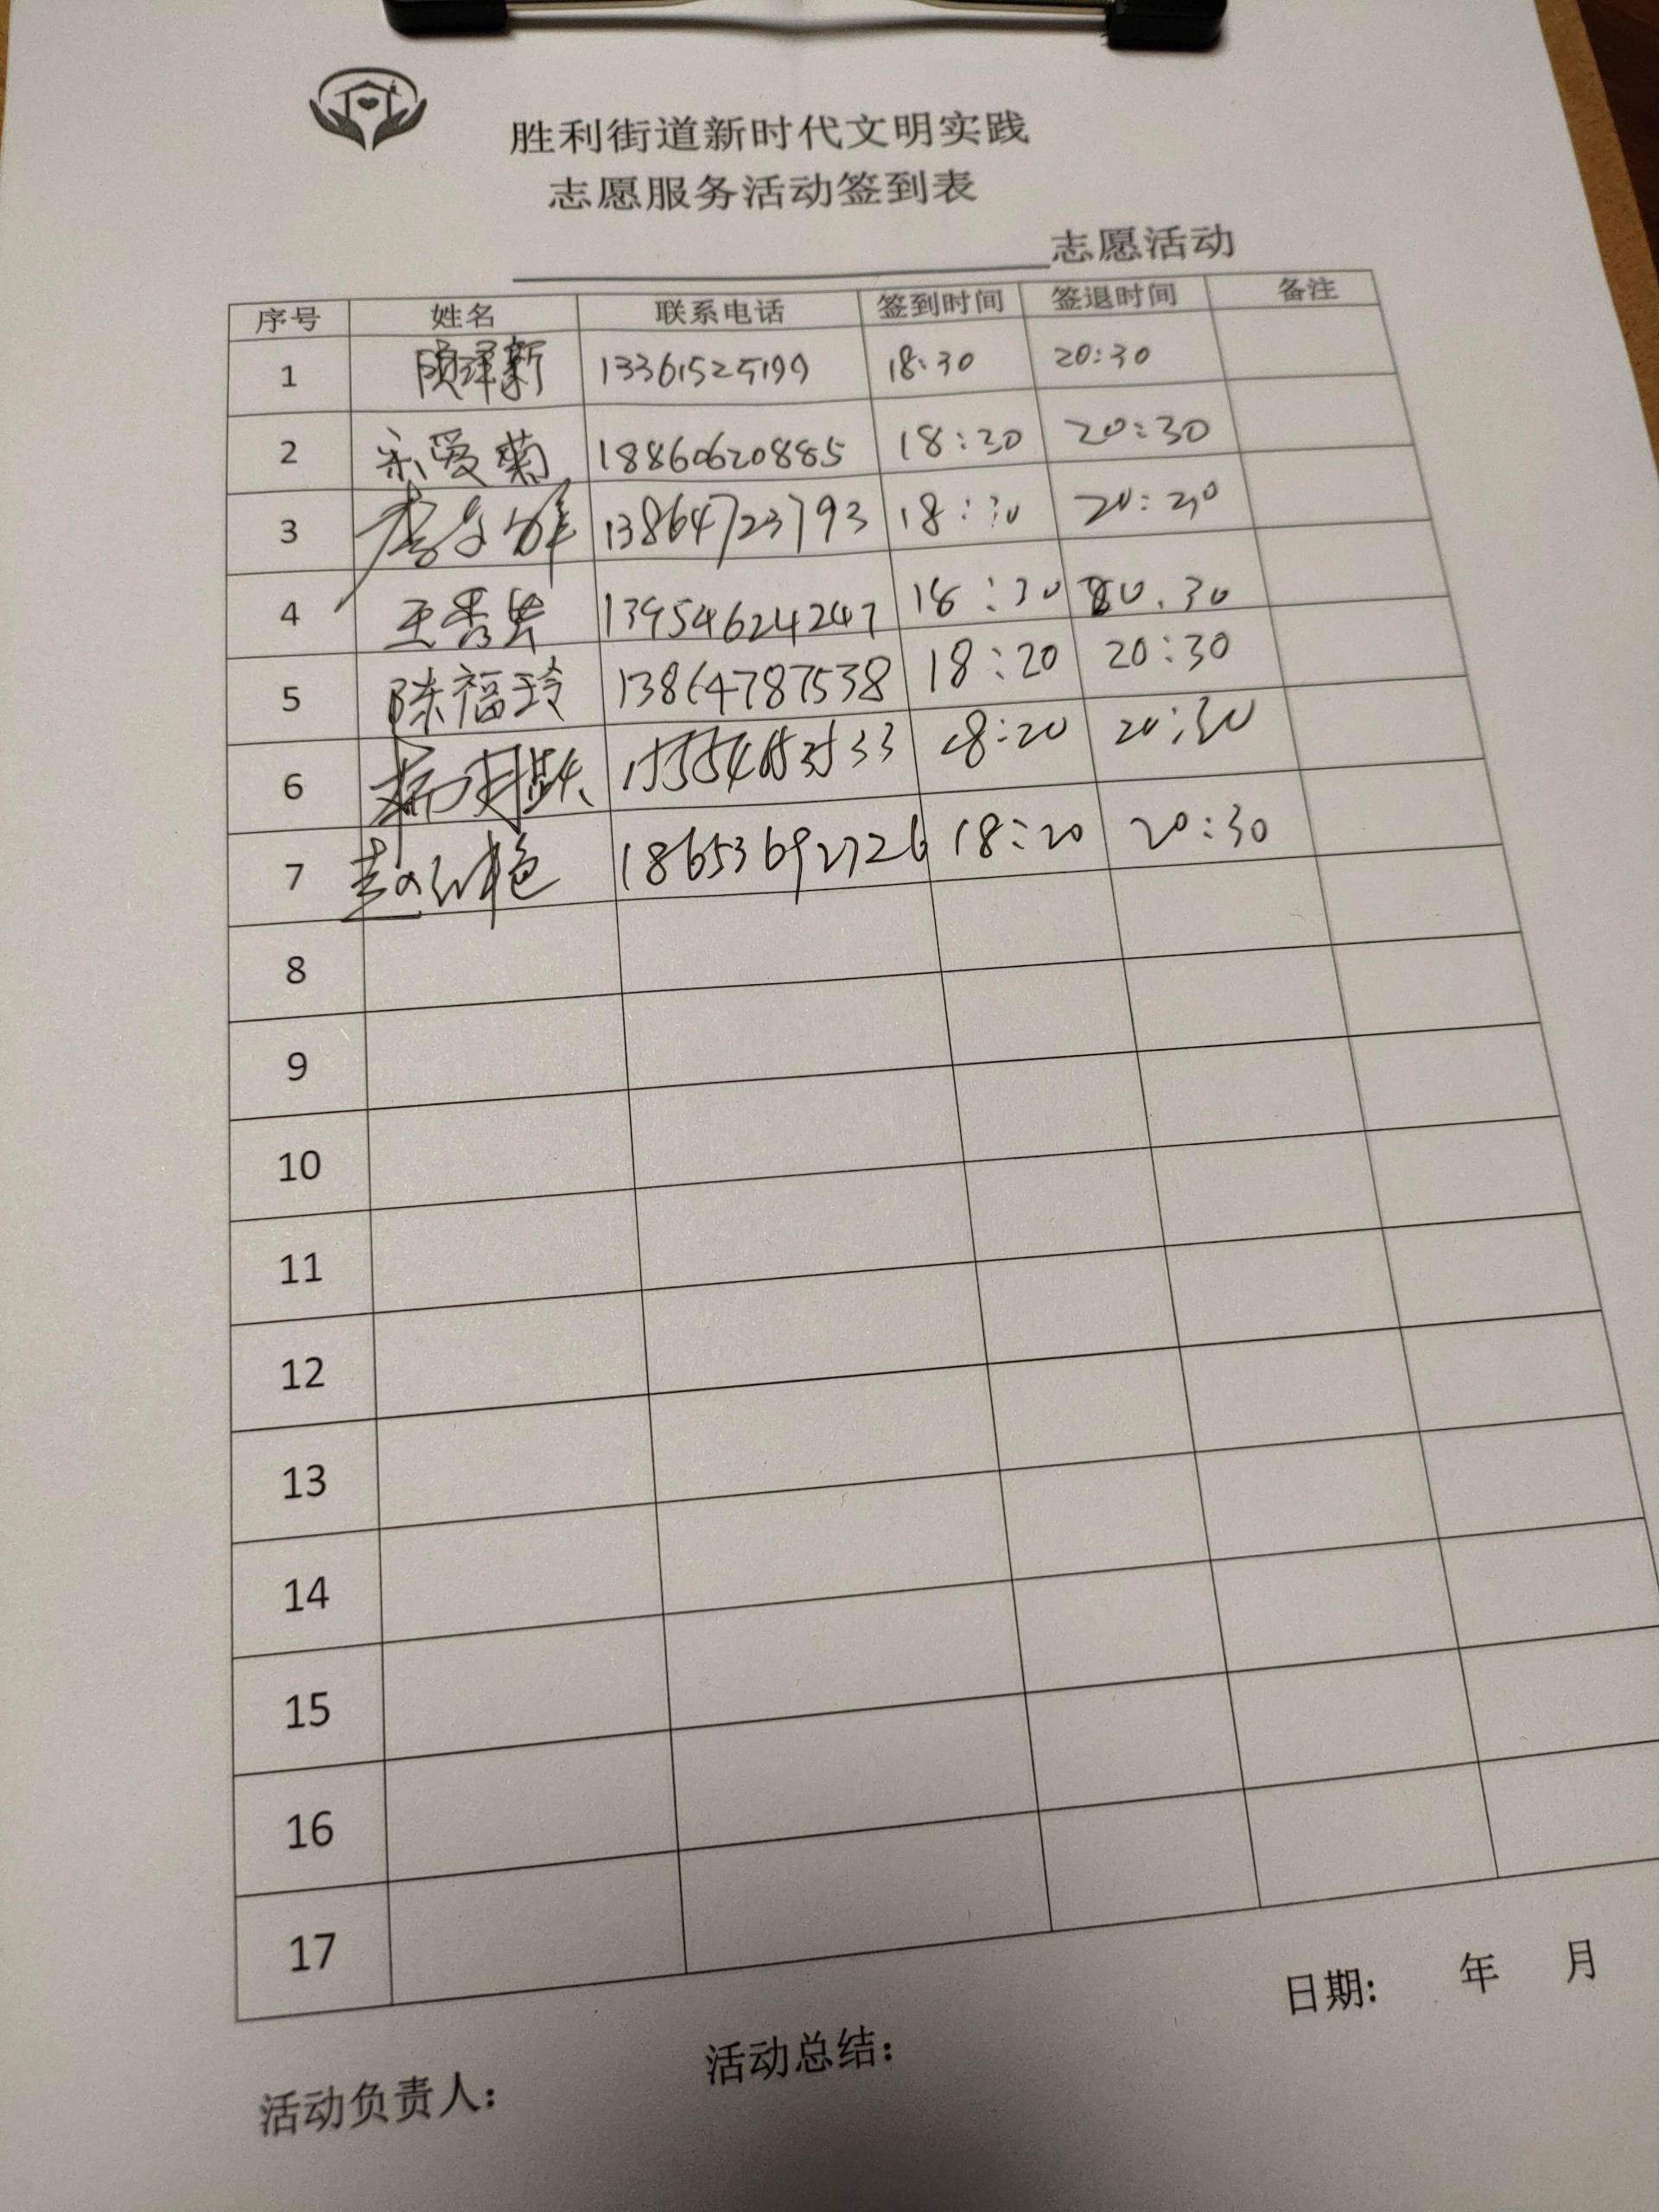 胜利街道新时代文明实践
志愿服务活动签到表
志愿活动
序号 姓名 联系电话 签到时间 签退时间 备注
1 13361525199 18:30 20:30
2 宋爱菊 18860620885 18:30 20:30
3 13864723793 18:30 20:30
4 王秀芸 13954624247 18:30 20.30
5 陈福玲 13864787538 18:20 20:30
6 18:20 20:30
7 赵红艳 18653692726 18:20 20:30
8
9
10
11
12
13
14
15
16
17
日期: 年 月
活动总结:
活动负责人: